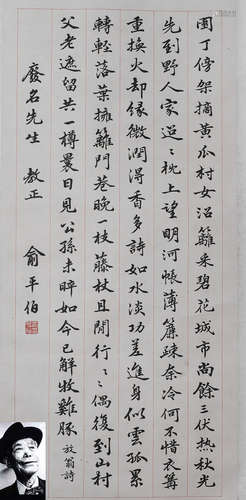 園丁傍架摘黄瓜村女沿籬采碧花城市尚餘三伏熱秋光
先到野人家迢〻枕上望明河帳薄簾疎奈冷何不惜衣篝
重換火却緣微潤得香多詩如水淡功差進身似雲孤累
轉輕落葉擁籬門巷晚一枝藤杖且閒行〻〻偶復到山村
父老遮留共一樽曩日見公孫未晬如今已解牧雞豚 放翁詩
廢名先生 教正
俞平伯